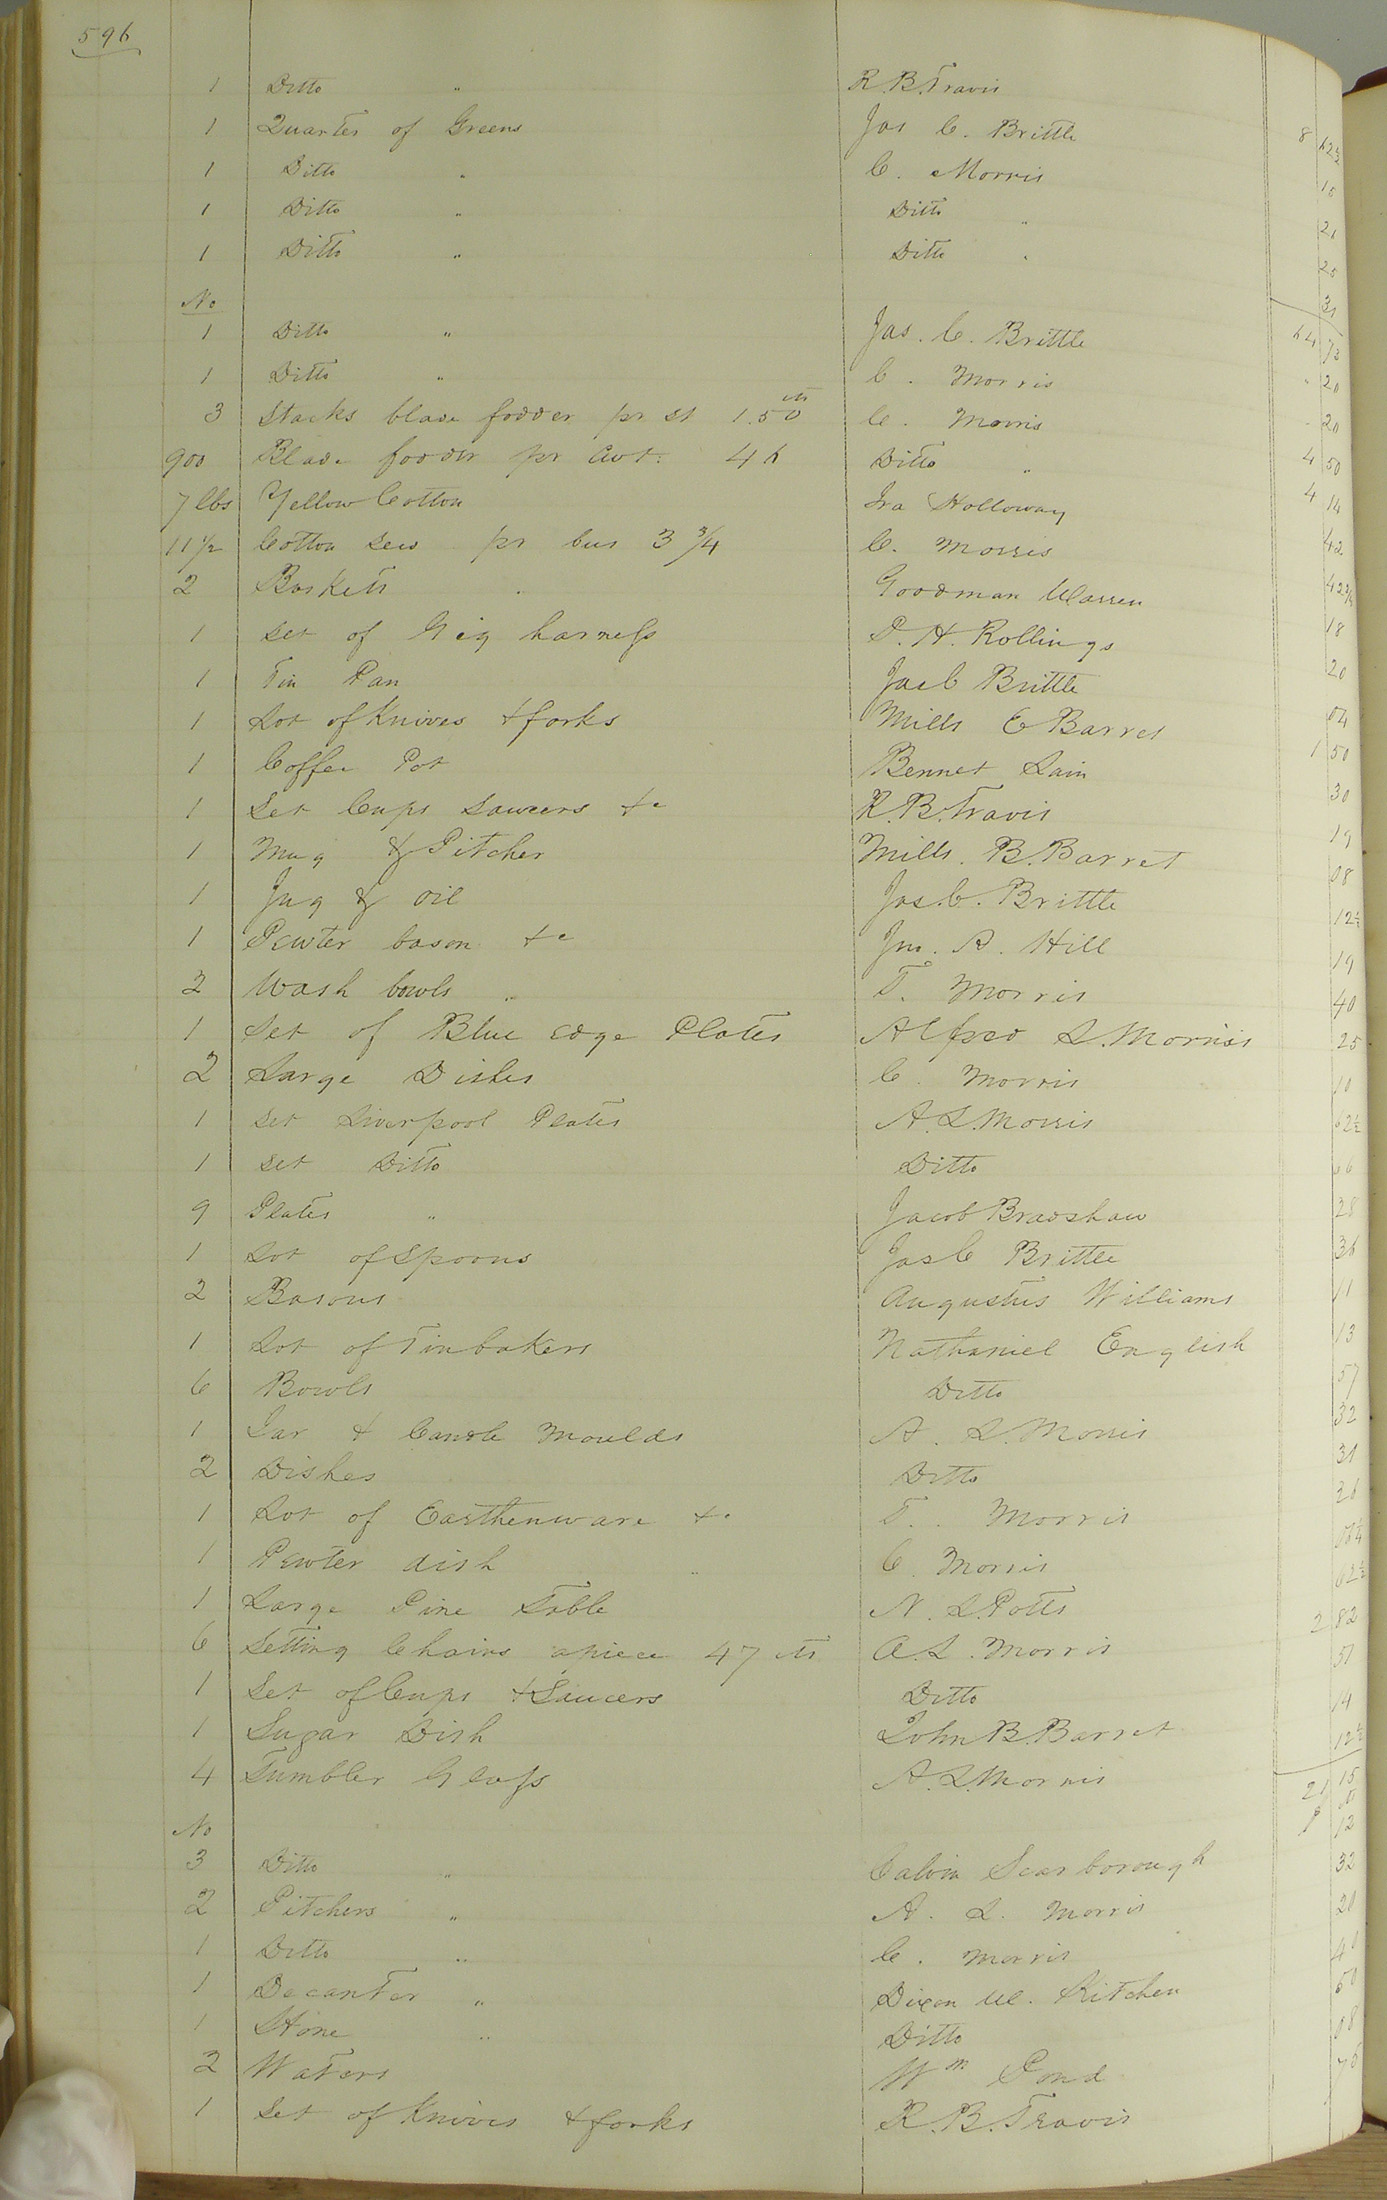 596
1 Ditto " R. B. Travis
1 Quarter of Greens Jas C. Brittle 8 62½
1 Ditto " C. Morris
1 Ditto " Ditto "
1 Ditto " Ditto "
No
1 Ditto " Jas. C. Brittle
1 Ditto " C. Morris 20
3 Stacks blade fodder pr st 1.50 cts C. Morris 20
900 Blade fodder pr Cwt. 46 Ditto " 4 50
7 lbs Yellow Cotton Ira Holloway 4 14
11½ Cotton sew pr bus 3 3/4 C. Morris 42
2 Baskets Goodman Warren
1 Set of Gig harness P. H. Rollings 18
1 Tin Pan Jas C Brittle 20
1 Lot of Knives & forks Mills E Barret 04
1 Coffee Pot Bennet Lain 1 50
1 Set Cups Saucers &c R. B. Travis 30
1 Mug & Pitcher Mills. B. Barret 19
1 Jug & oil Jas. C. Brittle 08
1 Pewter bason &c Jno. A. Hill 12½
2 Wash bowls " T. Morris 19
1 Set of Blue edge Plates Alfred L. Morris 40
2 Large Dishes C. Morris 25
1 Set Liverpool Plates A. L. Morris 10
1 Set Ditto Ditto 62½
9 Plates " Jacob Bradshaw
1 Lot of Spoons Jas C Brittle 28
2 Basons Augustus Williams 36
1 Lot of Tin bakers Nathaniel English 11
6 Bowls Ditto 13
1 Jar & Candle Moulds A. L. Morris 57
2 Dishes Ditto 32
1 Lot of Earthenware &c T. Morris 31
1 Pewter dish " C. Morris
1 Large Pine Table N. L. Potts
6 Setting Chairs apiece 47 cts A. L. Morris 2 82
1 Set of Cups & Saucers Ditto 51
1 Sugar Dish John B. Barret 14
4 Tumbler Glass A. L. Morris 12½
No
3 Ditto " Calvin Scarborough 12
2 Pitchers " A. L. Morris 32
1 Ditto " C. Morris 20
1 Decanter " Dixon W. Kitchen 40
1 Stone " Ditto 50
2 Waters Wm Pond 08
1 Set of Knives & forks R. B. Travis